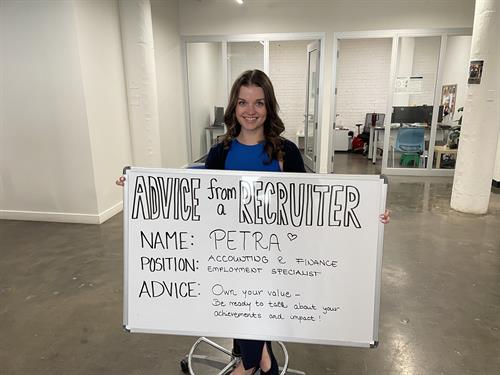 ADVICE from a RECRUITER
NAME: PETRA ♡
POSITION: ACCOUNTING & FINANCE
EMPLOYMENT SPECIALIST
ADVICE: Own your value –
Be ready to talk about your
achievements and impact!